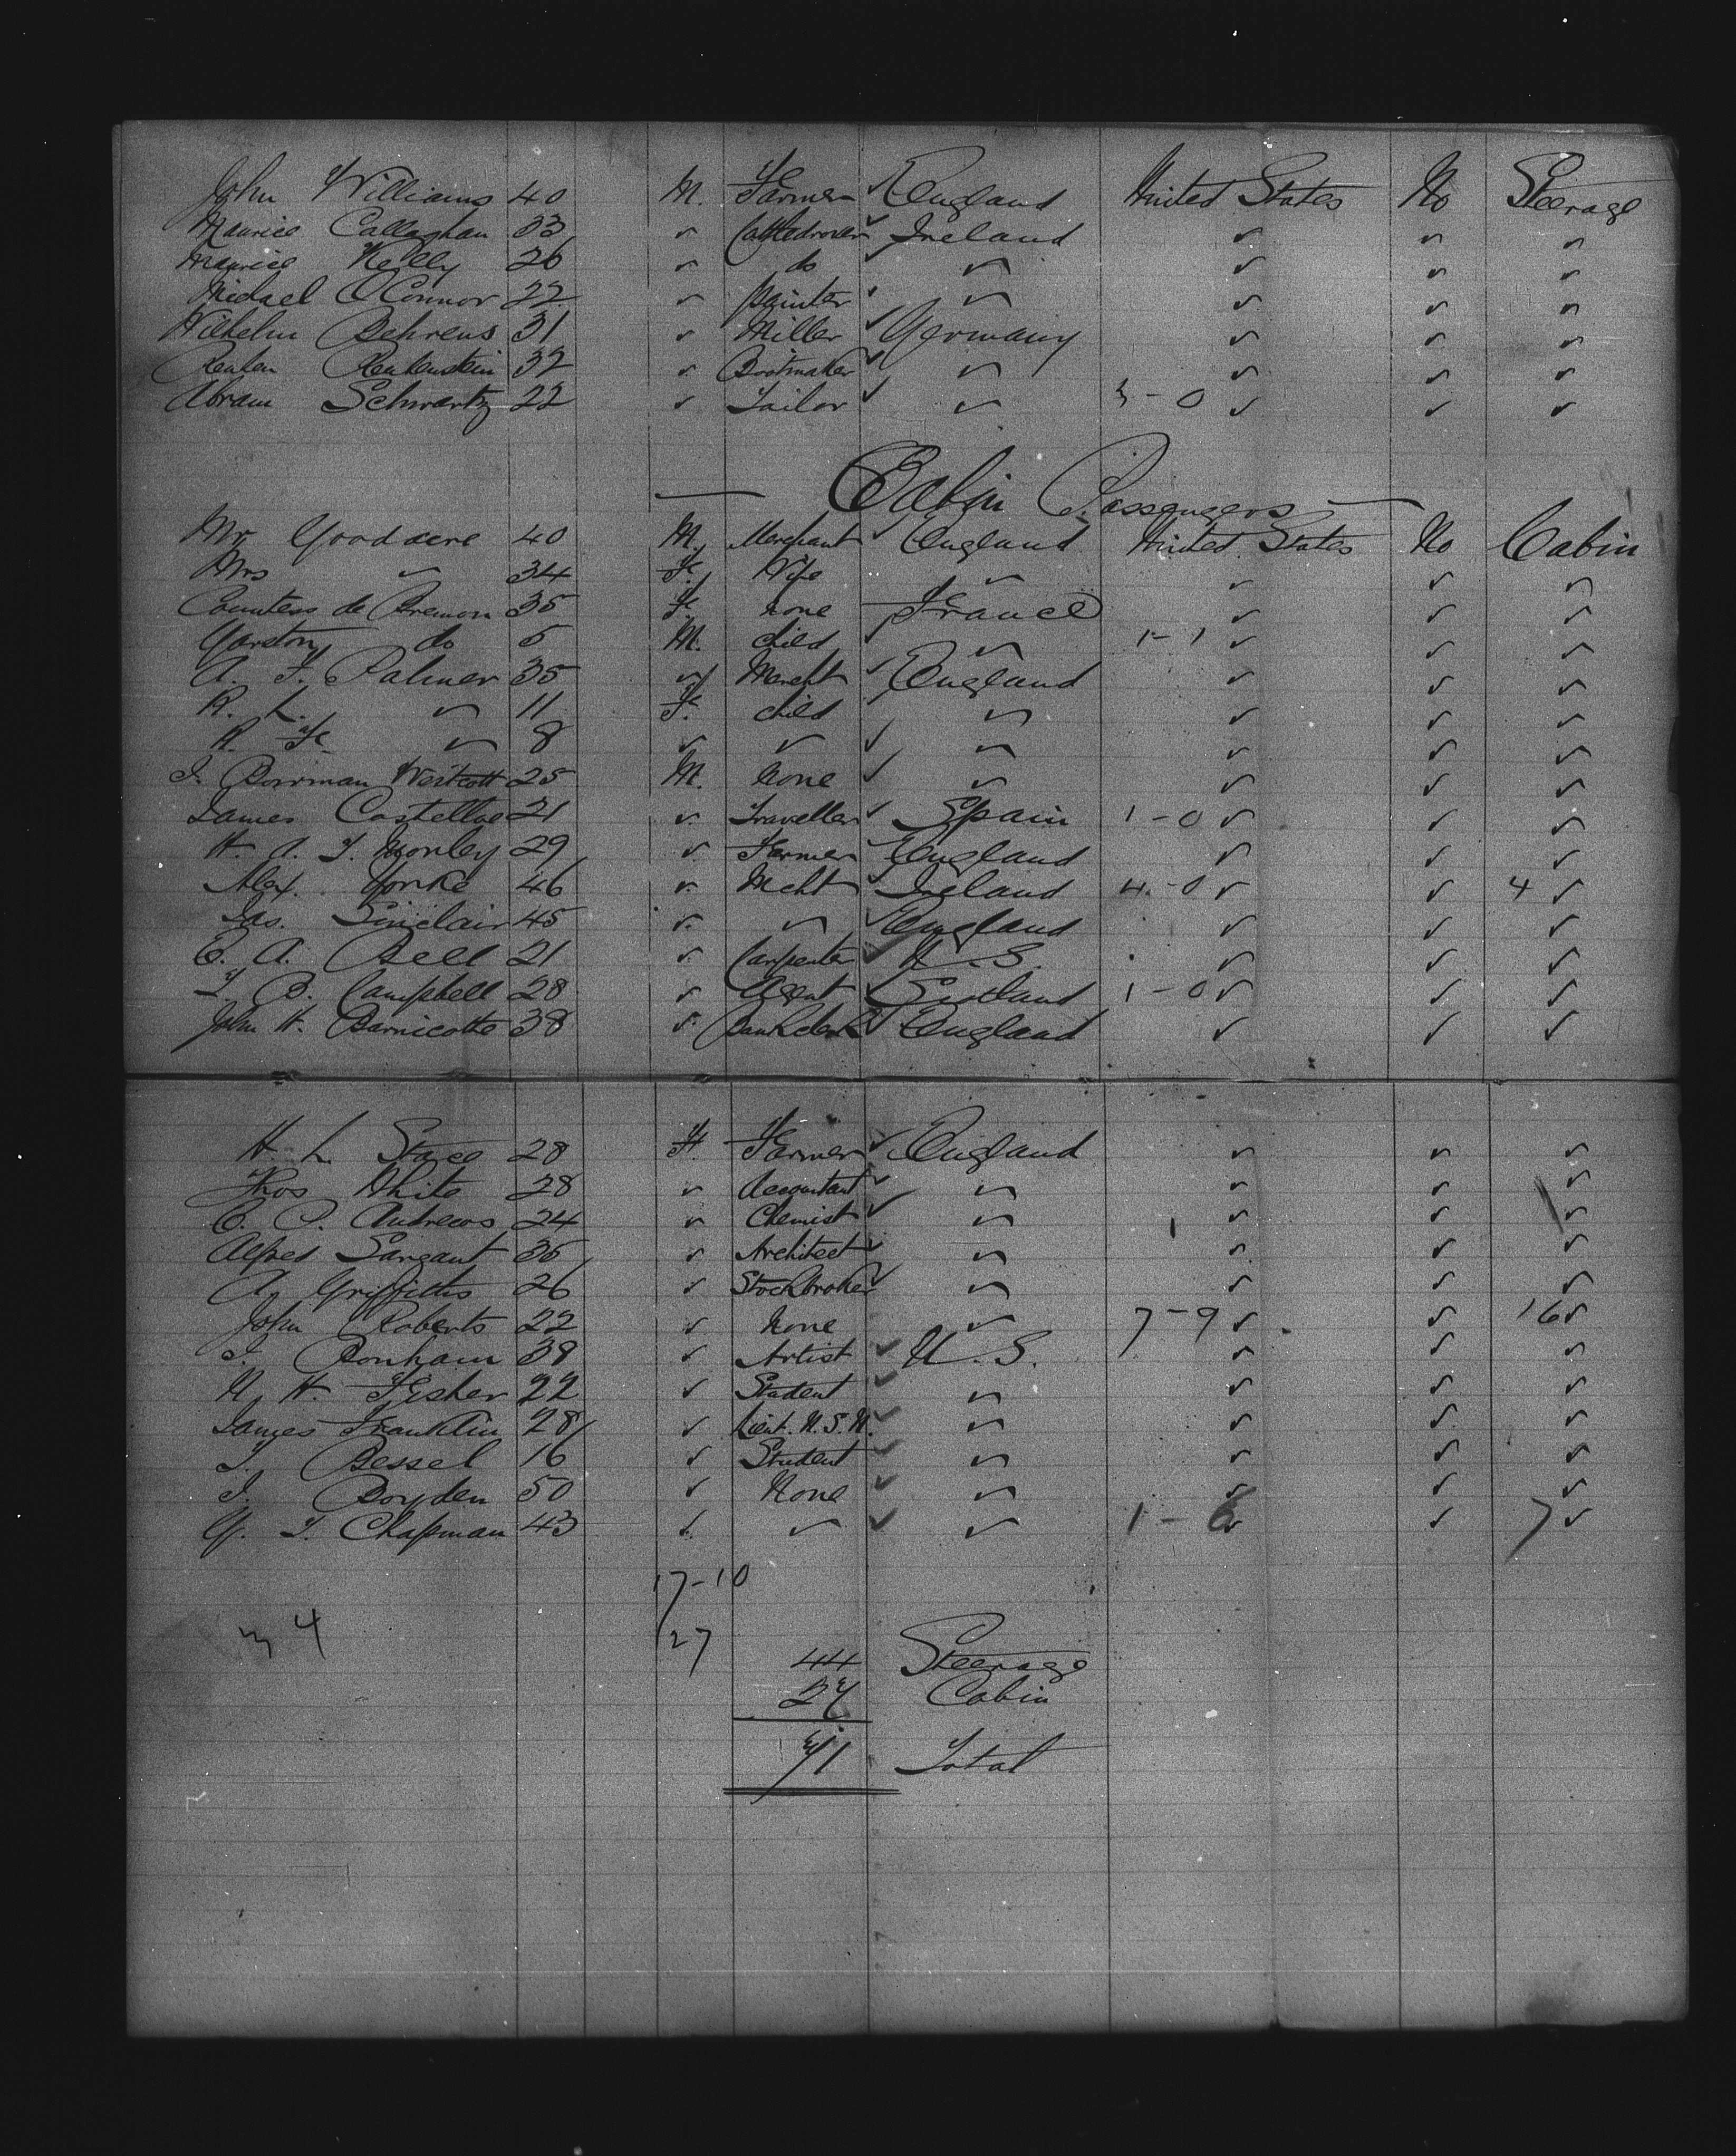 John Williams 40 M. Farmer ✓ England United States No Steerage
Maurice Callaghan 33 ✓ Cattledrover ✓ Ireland ✓ ✓ ✓
Maurice Kelly 26 ✓ do ✓ ✓ ✓ ✓ ✓
Michael O'Connor 22 ✓ painter ✓ ✓ ✓ ✓ ✓
Wilhelm Behrens 31 ✓ Miller ✓ Germany ✓ ✓ ✓
Reuben Reubenstein 32 ✓ Bootmaker ✓ ✓ ✓ ✓ ✓
Abram Schwartz 22 ✓ Tailor ✓ ✓ 3-0 ✓ ✓ ✓
— Cabin Passengers —
Mr Goodacre 40 M. Merchant ✓ England United States No Cabin
Mrs ✓ 34 F. Wife ✓ ✓ ✓ ✓
Countess de Bremon 35 F. none France ✓ ✓ ✓
Garston do 5 M. child ✓ ✓ 1-1 ✓ ✓ ✓
A. F. Palmer 35 ✓ Mercht ✓ England ✓ ✓ ✓
R. L. ✓ 11 F. child ✓ ✓ ✓ ✓
R. F. ✓ 8 ✓ ✓ ✓ ✓ ✓ ✓ ✓
J. Borrman Westcott 25 M. None ✓ ✓ ✓ ✓ ✓
James Costelloe 21 ✓ Traveller ✓ Spain 1-0 ✓ ✓ ✓
H. A. T. 29 ✓ Farmer England ✓ ✓ ✓
Alex. Yorke 46 ✓ Mcht ✓ Ireland 4-0 ✓ ✓ 4 ✓
Jas. Sinclair 45 ✓ ✓ ✓ England ✓ ✓ ✓
C. A. Bell 21 ✓ Carpenter ✓ U.S. ✓ ✓ ✓
T. B. Campbell 28 ✓ Agent ✓ Scotland 1-0 ✓ ✓ ✓
John H. Barnicotte 38 ✓ Bank clerk ✓ England ✓ ✓ ✓
H. L. Stace 28 M. Farmer ✓ England ✓ ✓ ✓
Thos White 28 ✓ Accountant ✓ ✓ ✓ ✓ ✓
C. P. Andrews 24 ✓ Chemist ✓ ✓ ✓ ✓ ✓
Alfred Sargant 35 ✓ Architect ✓ ✓ ✓ ✓ ✓
A. Griffiths 26 ✓ Stockbroker ✓ ✓ ✓ ✓ ✓
John Roberts 22 ✓ None ✓ 7-9 ✓ ✓ 16 ✓
J. Bonham 38 ✓ Artist ✓ U.S. ✓ ✓ ✓
N. H. Fisher 22 ✓ Student ✓ ✓ ✓ ✓ ✓
James Franklin 28 ✓ Lieut. U.S.N. ✓ ✓ ✓ ✓ ✓
T. Bessel 16 ✓ Student ✓ ✓ ✓ ✓ ✓
J. Boyden 50 ✓ None ✓ ✓ ✓ ✓ ✓
G. T. Chapman 43 ✓ ✓ ✓ ✓ 1-6 ✓ ✓ 7 ✓
17-10
3 4 27
44 Steerage
27 Cabin
71 Total